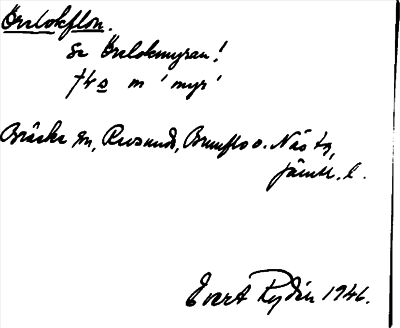 Örslokflon.
Se Örslokmyran!
flo m 'myr'
Bräcke sn, Revsunds, Brunflo o. Näs tg,
Jämtl. l.
Evert Rydén 1946.